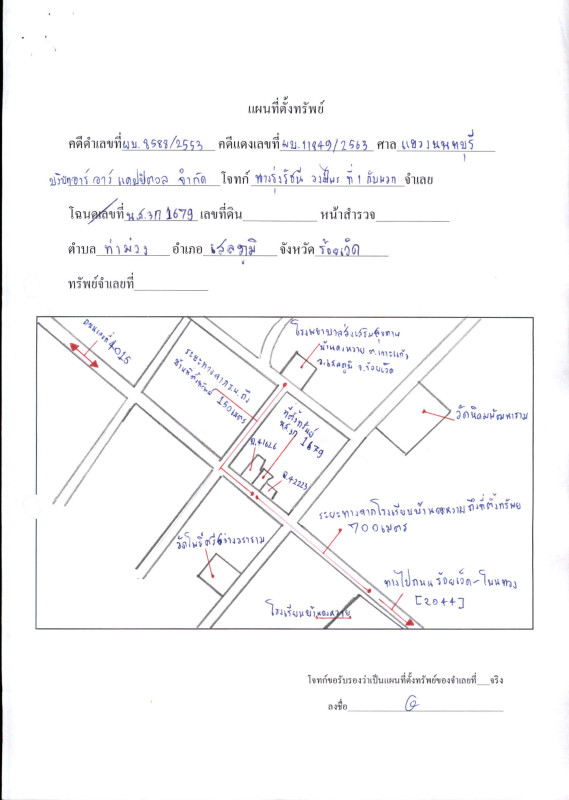 แผนที่ตั้งทรัพย์
คดีดำเลขที่ ผบ.9588/2553 คดีแดงเลขที่ ผบ.11849/2563 ศาล แขวงนนทบุรี
บริษัทอาร์ อาร์ แคปปิตอล จำกัด โจทก์ ที่ 1 กับพวก จำเลย
โฉนดเลขที่ น.ส.3ก 1679 เลขที่ดิน หน้าสำรวจ
ตำบล ท่าม่วง อำเภอ เสลภูมิ จังหวัด ร้อยเอ็ด
ทรัพย์จำเลยที่
ถนนเลขที่ 4015
ระยะทางจาก ร.พ. ถึง
บ้านที่ตั้งทรัพย์ 150 เมตร
โรงพยาบาลส่งเสริมสุขภาพ
บ้านดงหวาย ต.เกาะแก้ว
อ.เสลภูมิ จ.ร้อยเอ็ด
ที่ตั้งทรัพย์
น.ส.3ก 1679
ฉ.41626
ฉ.42223
วัดนิคมพัฒนาราม
ระยะทางจากโรงเรียนบ้านดงหวาย ถึงที่ตั้งทรัพย์
700 เมตร
วัดโพธิ์ศรี
ทางไปถนน ร้อยเอ็ด-โพนทอง
[2044]
โรงเรียนบ้านดงหวาย
โจทก์ขอรับรองว่าเป็นแผนที่ตั้งทรัพย์ของจำเลยที่ จริง
ลงชื่อ